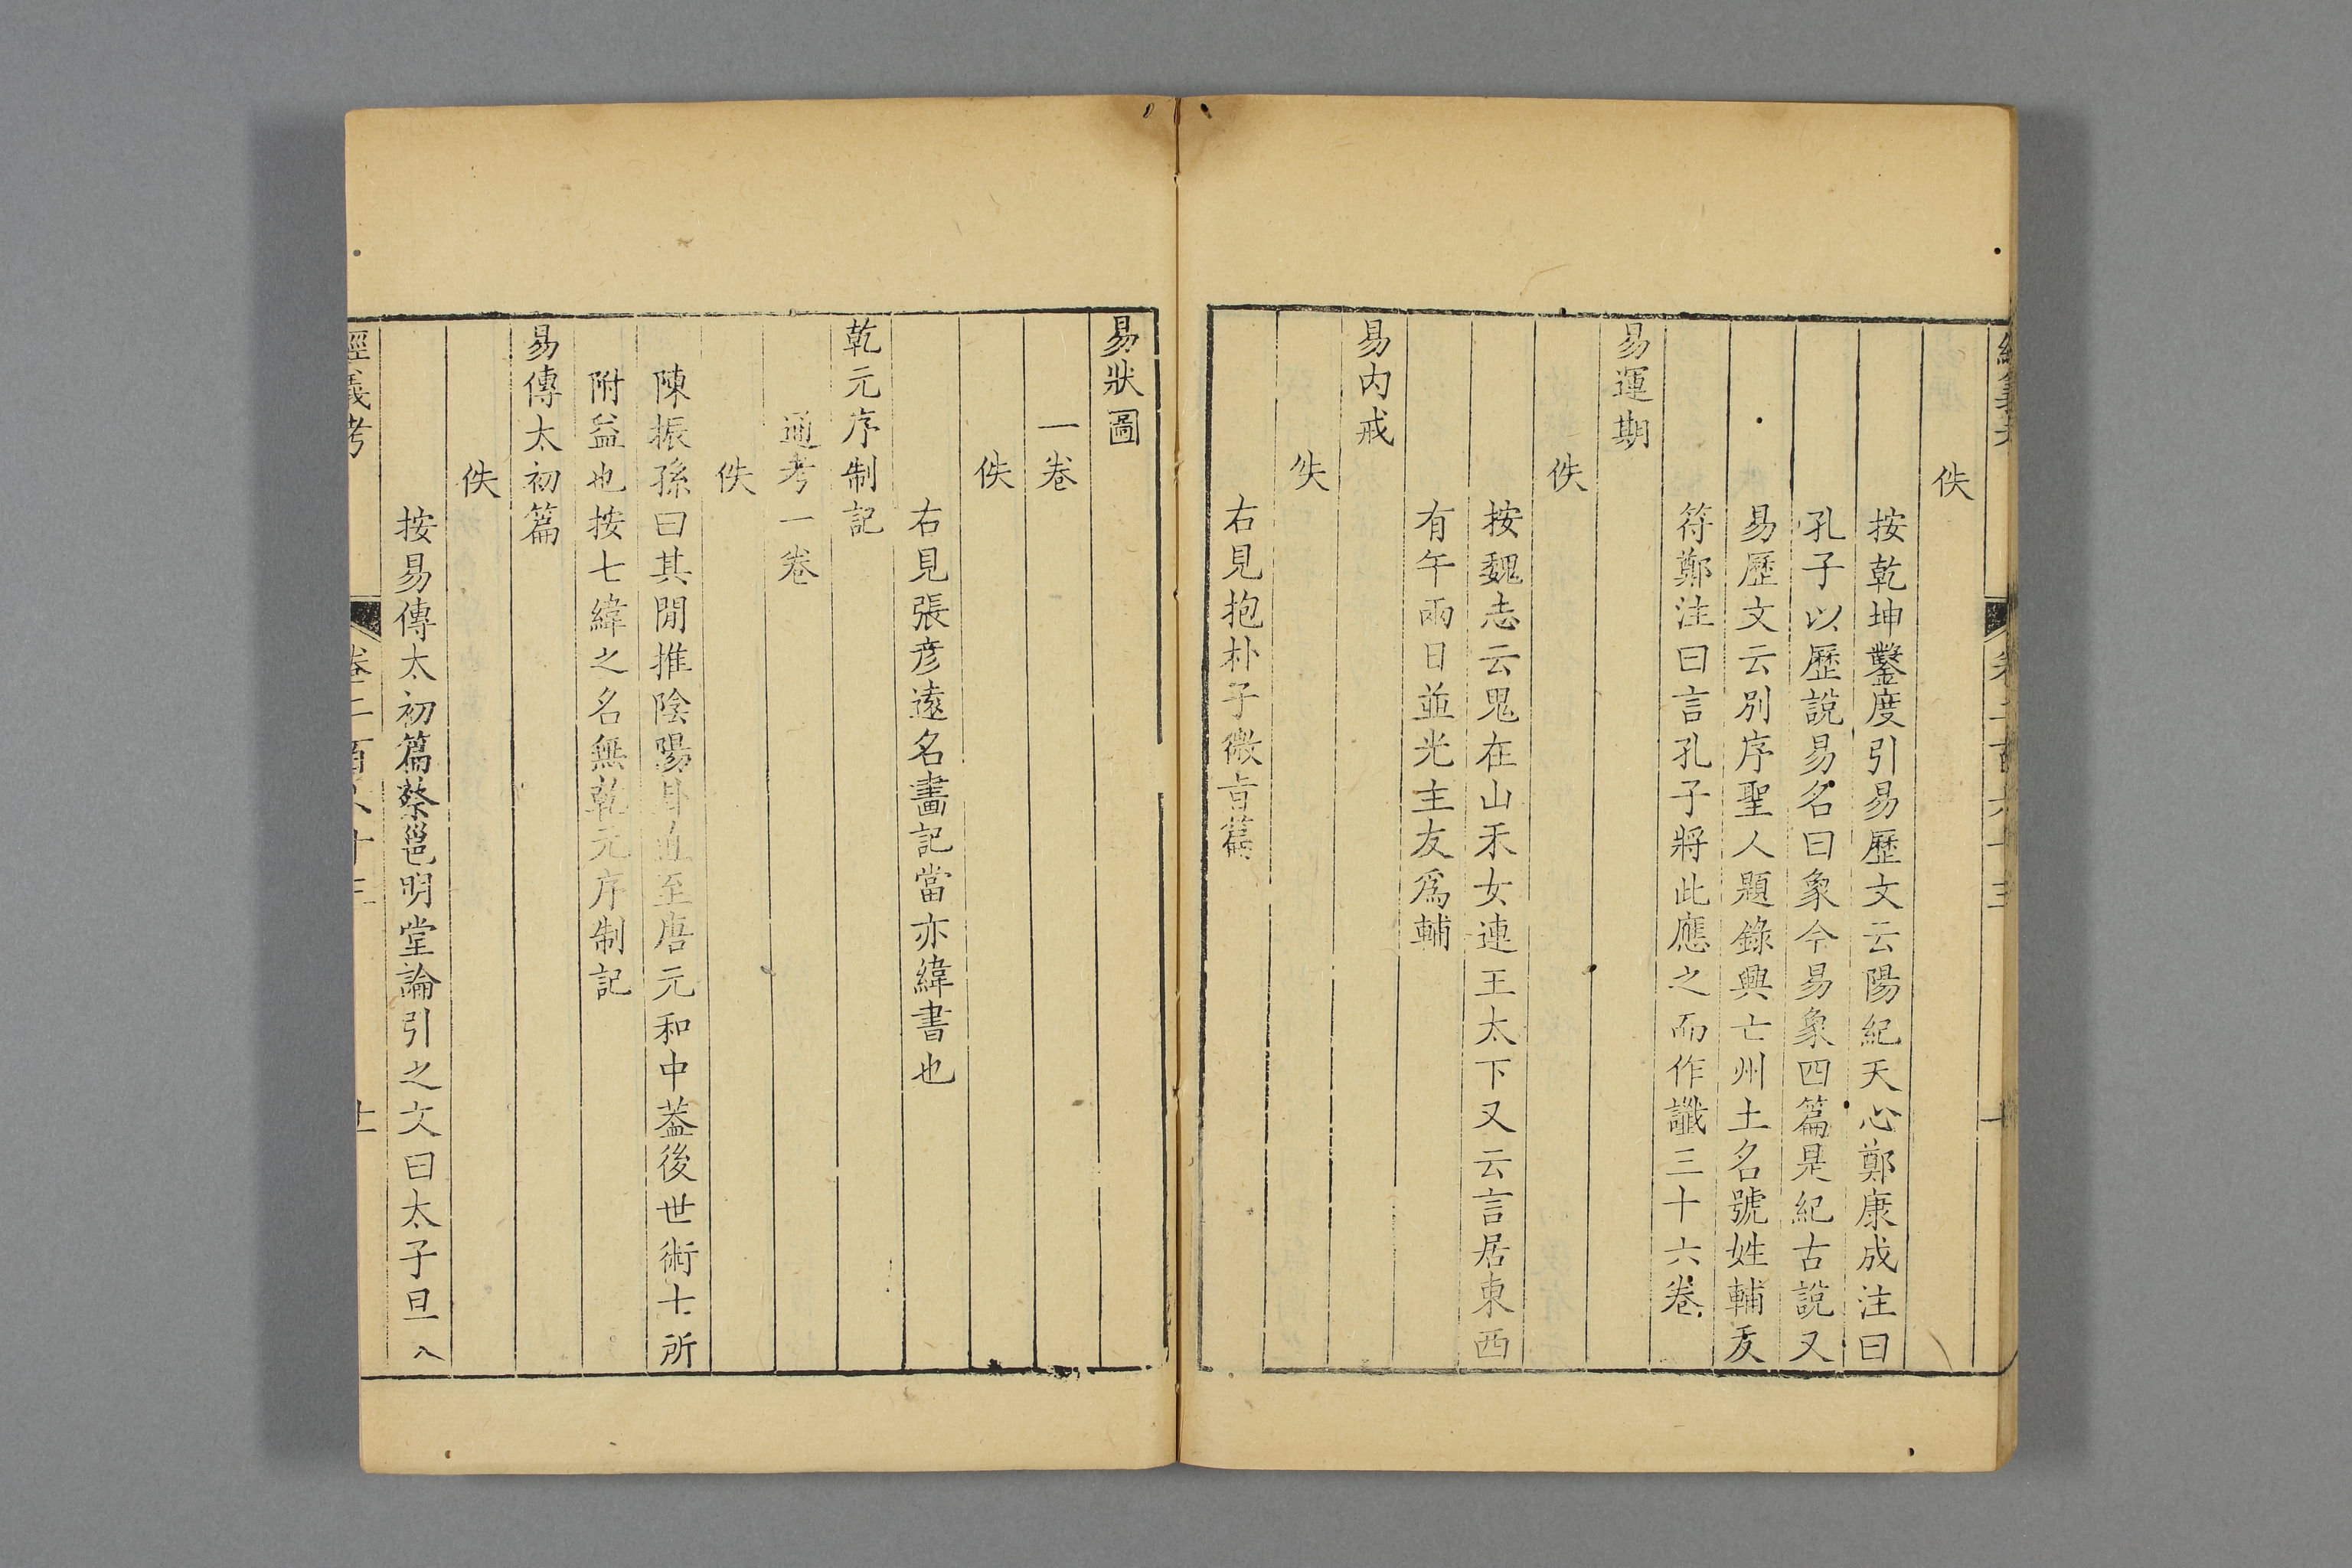 佚
按乾坤鑿度引易歷文云陽紀天心鄭康成注曰
孔子以歷說易名曰象今易象四篇是紀古說又
易歷文云別序聖人題錄興亡州土名號姓輔友
符鄭注曰言孔子將此應之而作讖三十六卷
易運期
佚
按魏志云鬼在山禾女連王太下又云言居東西
有午兩日並光主友爲輔
易內戒
佚
右見抱朴子微旨篇
易狀圖
一卷
佚
右見張彥遠名畵記當亦緯書也
乾元序制記
通考一卷
佚
陳振孫曰其閒推陰陽卦直至唐元和中葢後世術士所
附益也按七緯之名無乾元序制記
易傳太初篇
佚
按易傳太初篇蔡邕明堂論引之文曰太子旦入
經義考